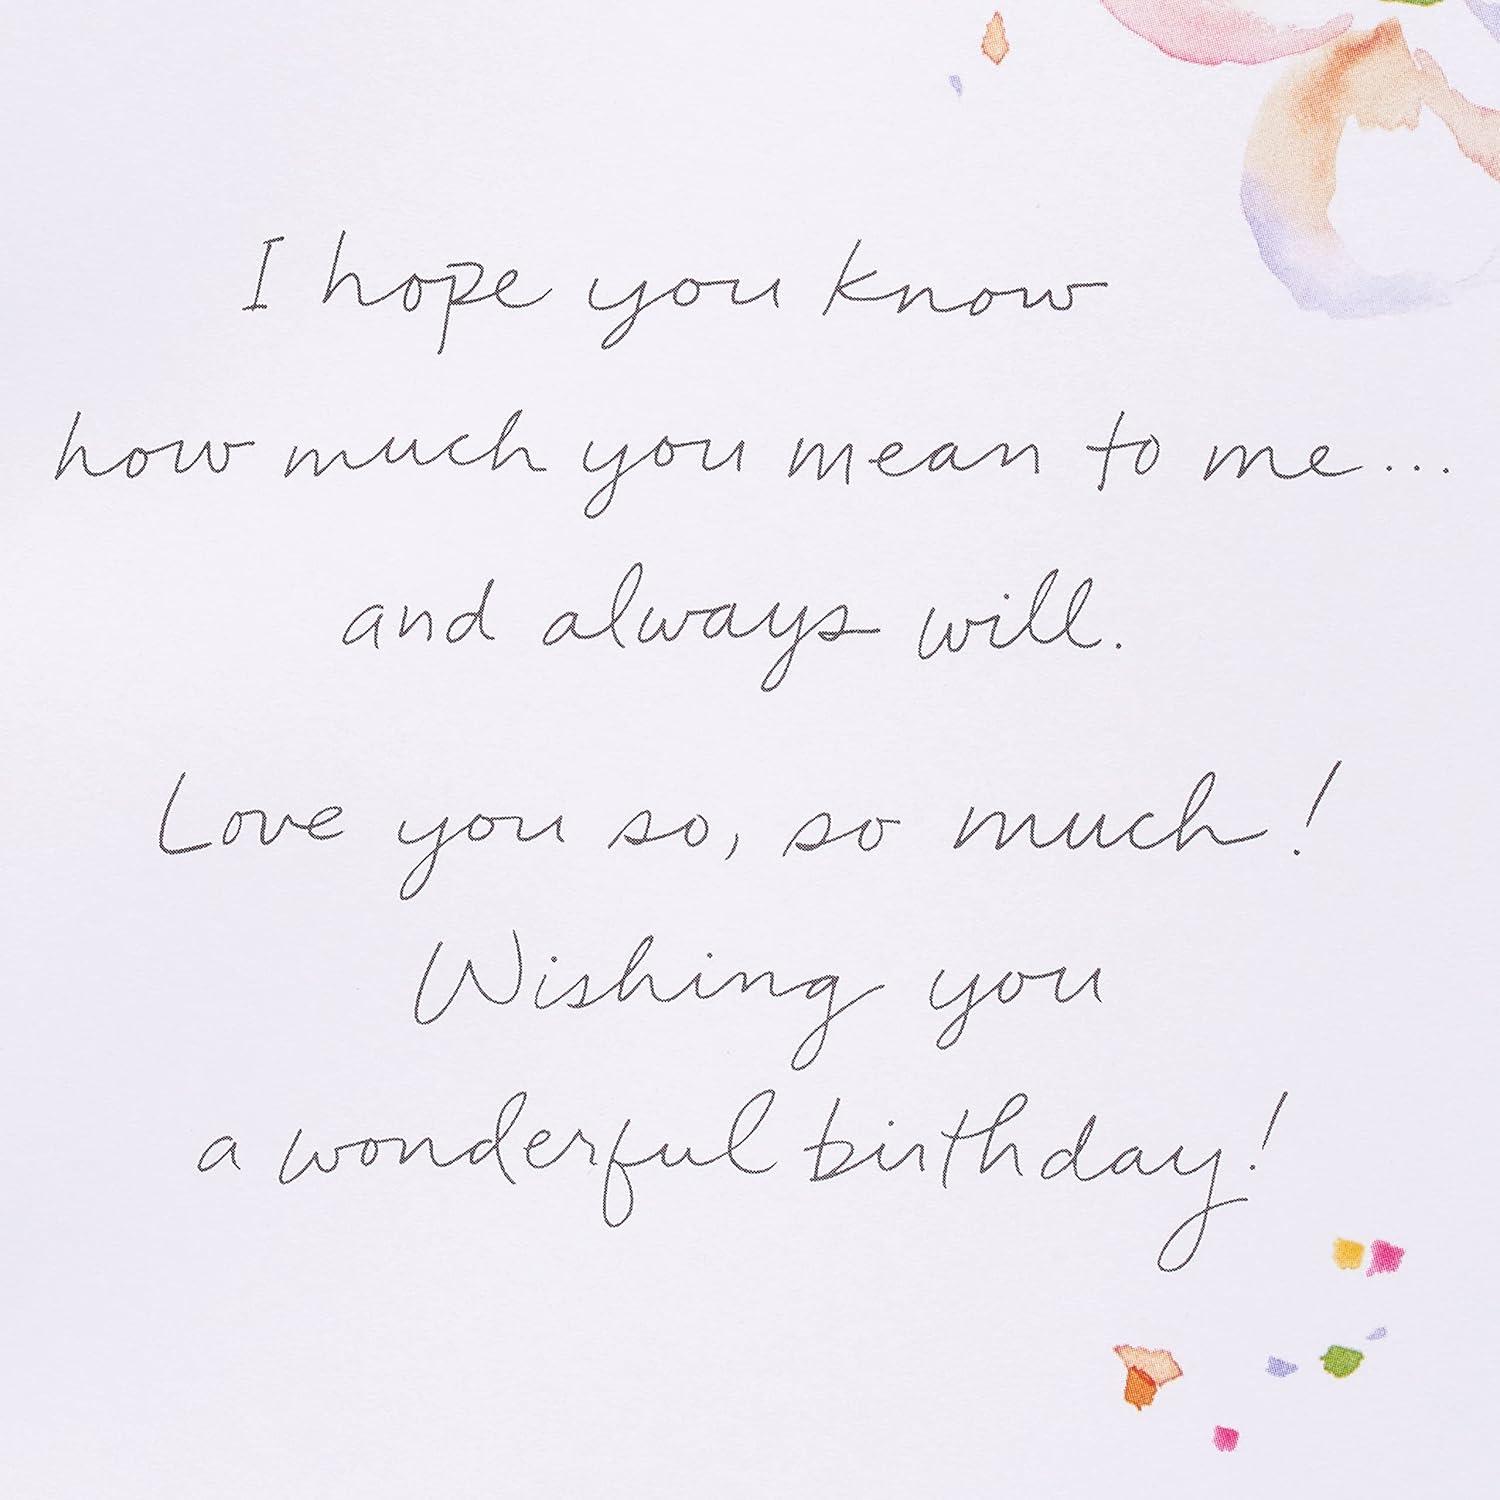 I hope you know
how much you mean to me...
and always will.
Love you so, so much!
Wishing you
a wonderful birthday!